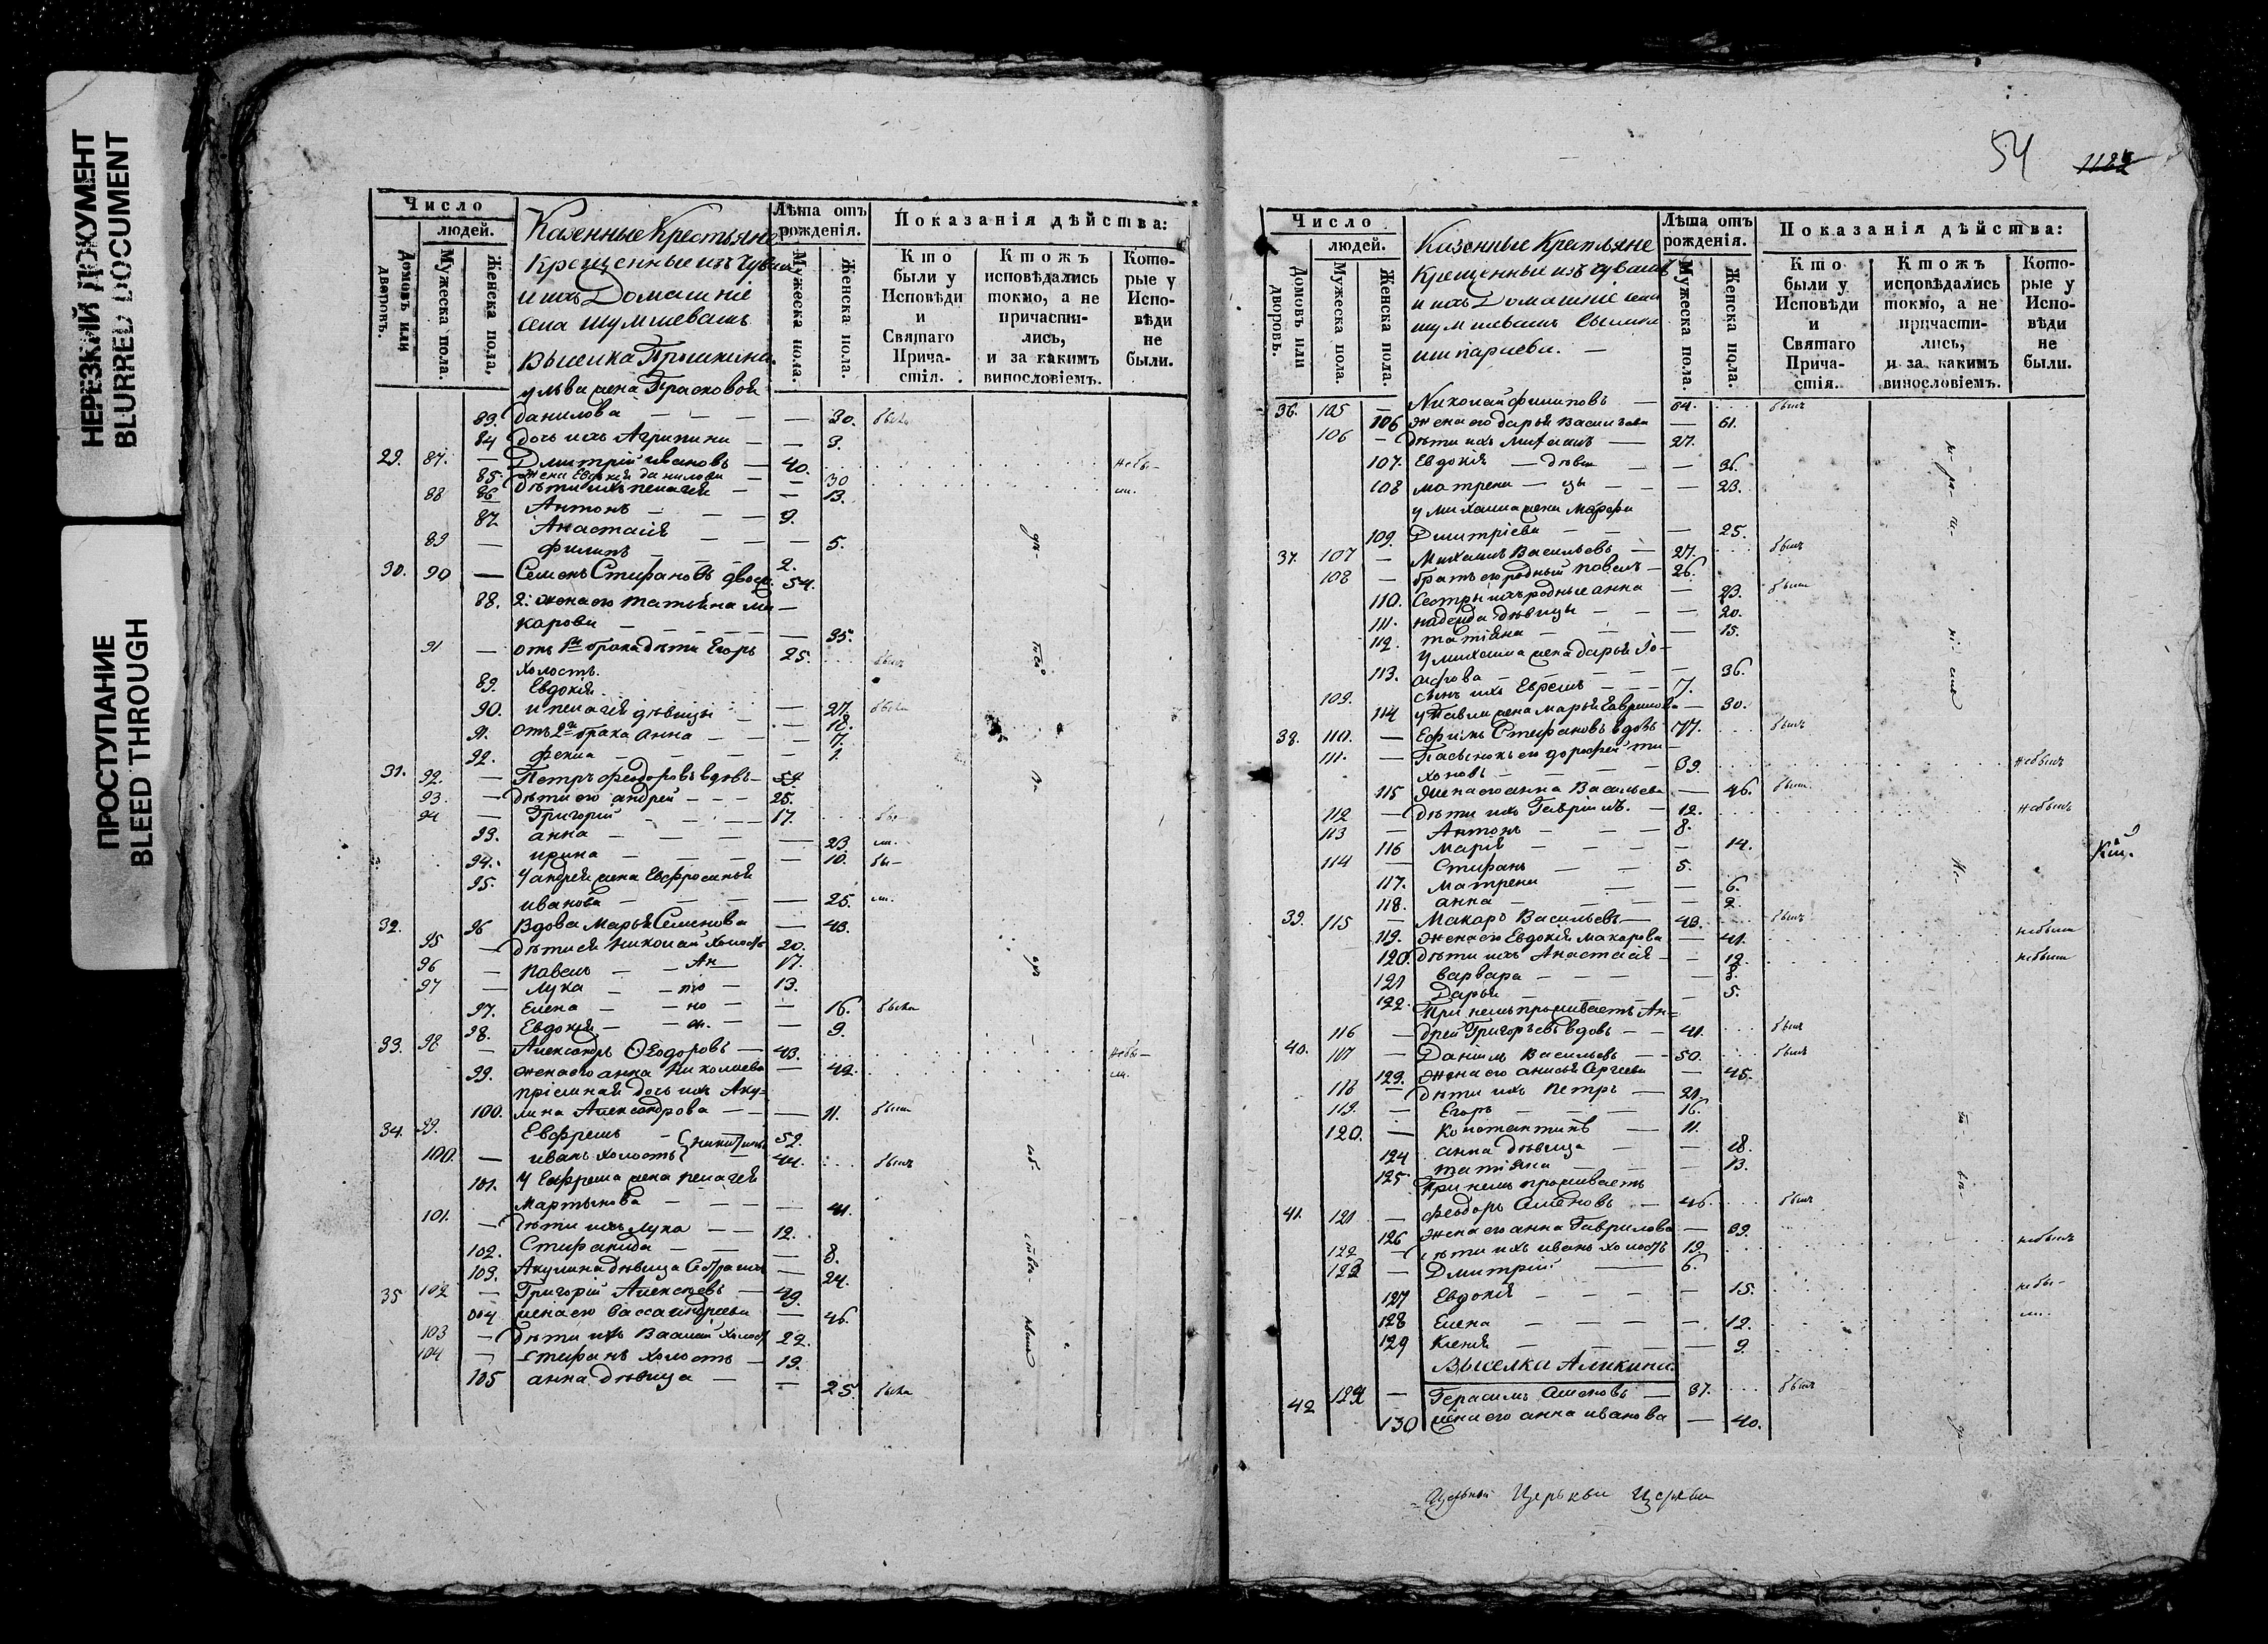 НЕРЕЗКИЙ ДОКУМЕНТ
BLURRED DOCUMENT
ПРОСТУПАНИЕ
BLEED THROUGH
Число
людей.
Домовъ или дворовъ.
Мужеска пола.
Женска пола.
Казенные Крестьяне
Крещенные изъ Чувашъ
и ихъ Домашнiе
села Шумшевашъ
Выселка
Лѣта отъ рожденiя.
Мужеска пола.
Женска пола.
Показанiя дѣйства:
Кто были у Исповѣди и Святаго Прича-стiя.
Ктожъ исповѣдались токмо, а не причасти-лись, и за какимъ винословiемъ.
Кото-рые у Испо-вѣди не были.
у Льва жена Прасковья
83. Данилова — 30. была
84 дочь ихъ Агрипина — 3.
29. 87. — Дмитрiй Ивановъ — 40. небы-
85. Жена Евдокiя Данилова — 30 ли.
86 Дѣти ихъ Пелагея — 13.
88 Антонъ — 9.
87. Анастасiя — 5.
89 — Филипъ — 2.
30. 90 — Семенъ Стефановъ 54.
88. 2. жена его Татьяна Ма-
карова — 35.
91 — отъ 1го брака дѣти Егоръ 25. былъ
холостъ.
89. Евдокiя
90. и Пелагея дѣвицы — 27. была
91. отъ 2го брака Анна — 7.
92. Фекла — 1.
31. 92. — Петръ Феодоровъ вдовъ — 59.
93. — дѣти его Андрей — 25.
94 — Григорiй — 17. бы-
93. Анна — 23 ли.
94. Ирина — 10. бы-
95. У Андрея жена Евфросинья
Иванова — 25. ли.
32. 96 Вдова Марья Семенова — 43.
95 — дѣти ея Николай холостъ 20.
96 — Павелъ — 17.
97 — Лука — 13.
97. Елена — 16. была
98. Евдокiя — 9
33. 98 — Александръ Ѳеодоровъ — 43. небы-
99. жена его Анна Николаева — 42. ли.
прiемная дочь ихъ Аку-
100. лина Александрова — 11. была
34. 99. Евфремъ — Никитины 52.
100. — Иванъ холостъ 44. былъ
101. У Евфрема жена Пелагея
Мартынова — 41.
101. — Дѣти ихъ Лука — 12.
102. Стефанида — 8.
103. Акулина дѣвица — 24.
35 102 — Григорiй Алексѣевъ — 49.
104 жена его Васса Андреева — 46
103 — Дѣти ихъ Василiй холостъ 22.
104 — Стефанъ холостъ — 19.
105 Анна дѣвица — 25 была
54
1182
Число
людей.
Домовъ или дворовъ.
Мужеска пола.
Женска пола.
Казенные Крестьяне
Крещенные изъ Чувашъ
и ихъ Домашнiе села
Шумшевашъ Выселка
Лѣта отъ рожденiя.
Мужеска пола.
Женска пола.
Показанiя дѣйства:
Кто были у Исповѣди и Святаго Прича-стiя.
Ктожъ исповѣдались токмо, а не причасти-лись, и за какимъ винословiемъ.
Кото-рые у Испо-вѣди не были.
36. 105 — Николай Филиповъ — 64. былъ
106 жена его Дарья Васильева — 61.
106 — дѣти ихъ Михаилъ — 27.
107. Евдокiя — дѣви — 36.
108 Матрена — цы — 23.
у Михаила жена Марфа
109. Дмитрiева — 25.
37. 107 — Михаилъ Васильевъ — 27. былъ
108 — братъ его родный Павелъ — 26.
110. Сестры ихъ родные Анна — 23. была
111. Надежда дѣвицы — 20.
112. Татiяна — 15.
У Михаила жена Дарья Iо-
113. — 36.
109. сынъ ихъ Ефремъ — 7.
114 у Павла жена Марья Гаврилова — 30.
38. 110. — Ефимъ Стефановъ вдовъ 77. былъ
111. — Пасынокъ его Дорофей Ти-
хоновъ — 39. небылъ
115 Жена его Анна Васильева — 46. была
112 — дѣти ихъ Гаврiилъ. — 12. небылъ
113 — Антонъ — 8.
116 Марiя — 14.
114 — Стефанъ — 5.
117. Матрена — 6.
118. Анна — 2.
39. 115 — Макаръ Васильевъ — 43. былъ
119. жена его Евдокiя Макарова — 41. небыла
120. дѣти ихъ Анастасiя — 12. небыла
121 Варвара — 8.
122. Дарья — 5.
При немъ проживаетъ Ан-
116 — дрей Григорьевъ вдовъ — 41. былъ
40. 117 — Данiилъ Васильевъ — 50. былъ
123. жена его Анисья Сергеева — 45.
118 — дѣти ихъ Петръ — 21.
119. — Егоръ — 16.
120. — Константинъ — 11.
124 Анна дѣвица — 18.
125 Татiяна — 13.
При немъ проживаетъ
41. 121 — Феодоръ Семеновъ — 46. былъ
126 жена его Анна Гаврилова — 39.
122 — дѣти ихъ Иванъ холостъ 19. небылъ
123 — Дмитрiй — 6.
127 Евдокiя — 15. небы-
128 Елена — 12. ли.
129 Ксенiя — 9.
Выселка Аликина.
42 124 — Герасимъ Семеновъ — 37. былъ
130 жена его Анна Иванова — 40.
Церкви Церкви